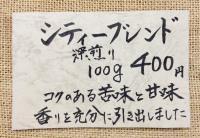 シティーブレンド
深煎り
100g 400円
コクのある苦味と甘味
香りを充分に引き出しました